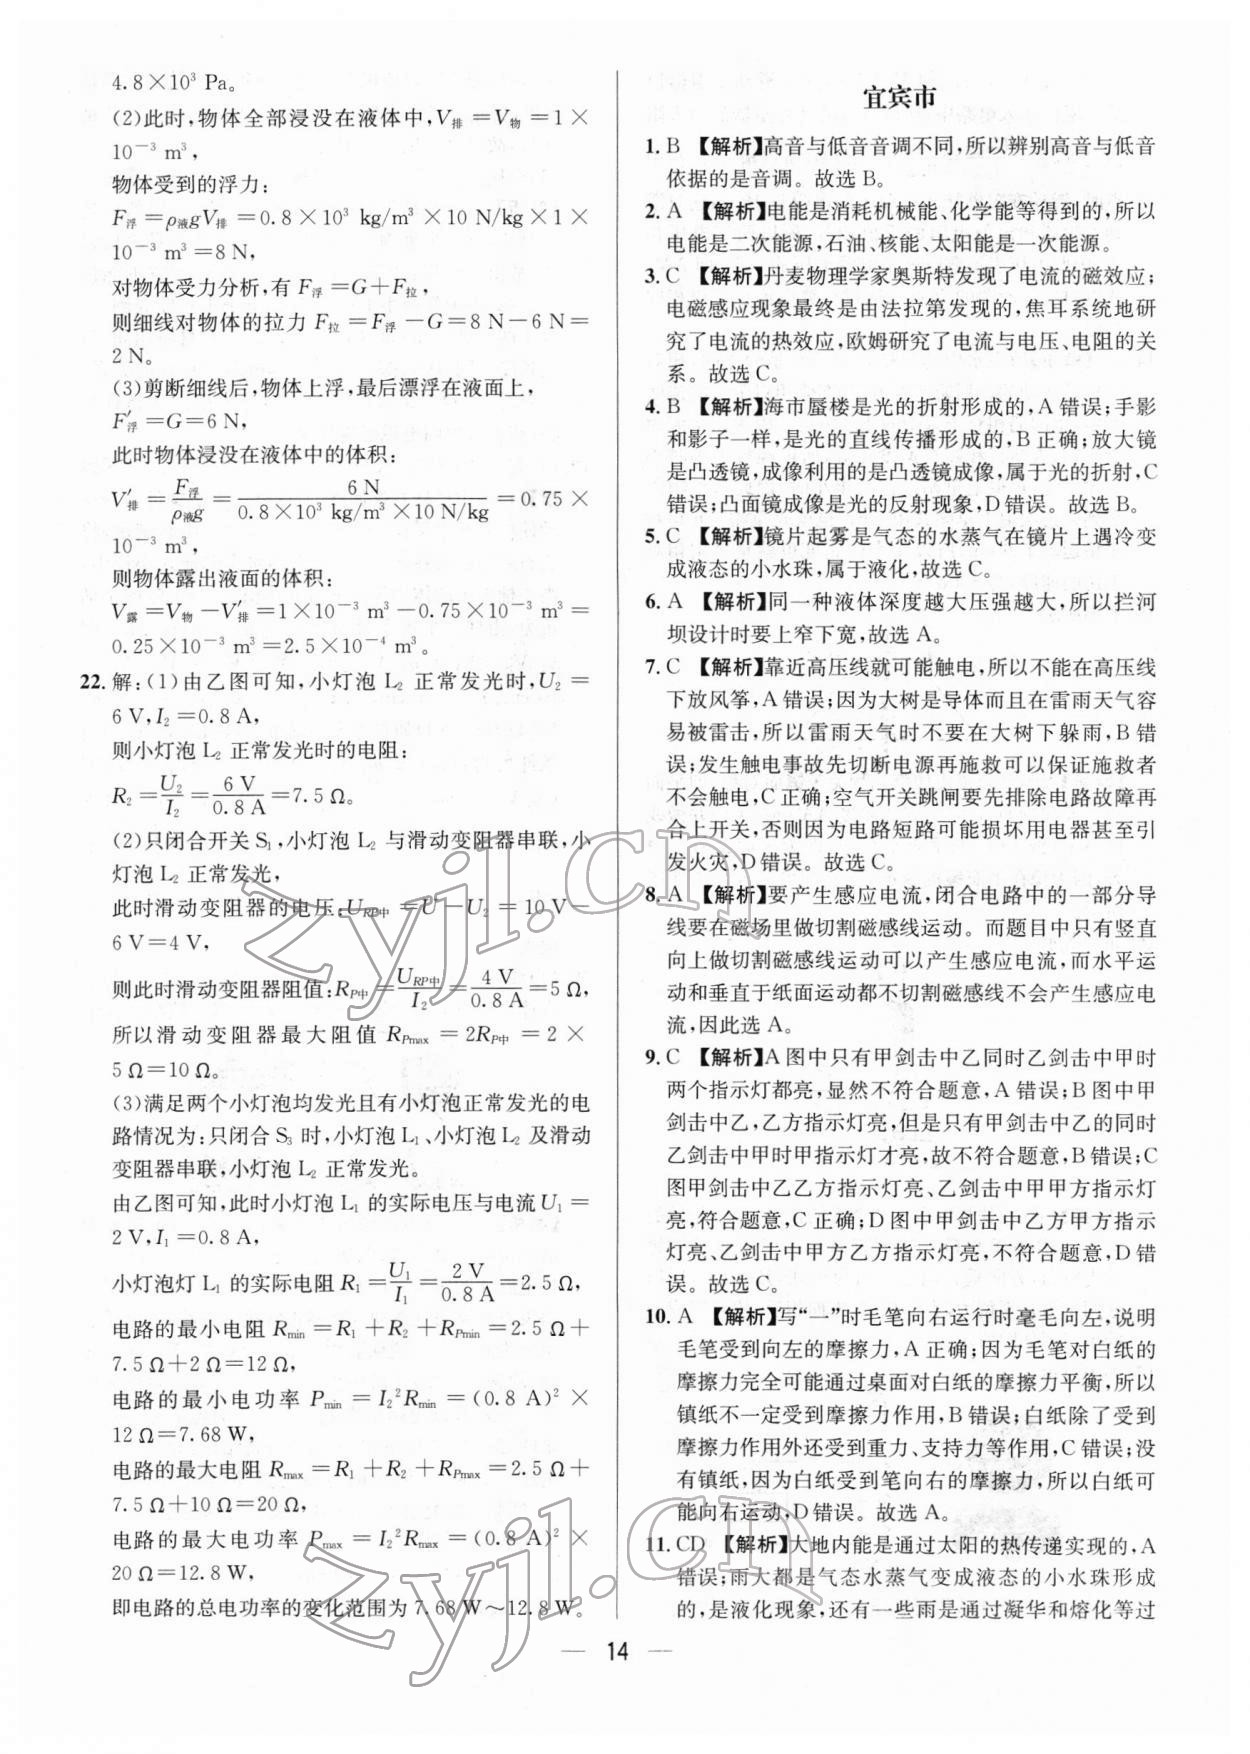 4.8×10³ Pa。
(2)此时,物体全部浸没在液体中,V排=V物=1×
10⁻³ m³,
物体受到的浮力:
F浮=ρ液gV排=0.8×10³ kg/m³×10 N/kg×1×
10⁻³ m³=8 N,
对物体受力分析,有 F浮=G+F拉,
则细线对物体的拉力 F拉=F浮-G=8 N-6 N=
2 N。
(3)剪断细线后,物体上浮,最后漂浮在液面上,
F′浮=G=6 N,
此时物体浸没在液体中的体积:
V′排=F浮/ρ液g=6 N/(0.8×10³ kg/m³×10 N/kg)=0.75×
10⁻³ m³,
则物体露出液面的体积:
V露=V物-V′排=1×10⁻³ m³-0.75×10⁻³ m³=
0.25×10⁻³ m³=2.5×10⁻⁴ m³。
22. 解:(1)由乙图可知,小灯泡 L₂ 正常发光时,U₂=
6 V,I₂=0.8 A,
则小灯泡 L₂ 正常发光时的电阻:
R₂=U₂/I₂=6 V/0.8 A=7.5 Ω。
(2)只闭合开关 S₁,小灯泡 L₂ 与滑动变阻器串联,小
灯泡 L₂ 正常发光,
此时滑动变阻器的电压:U_RP中=U-U₂=10 V-
6 V=4 V,
则此时滑动变阻器阻值:R_P中=U_RP中/I₂=4 V/0.8 A=5 Ω,
所以滑动变阻器最大阻值 R_Pmax=2R_P中=2×
5 Ω=10 Ω。
(3)满足两个小灯泡均发光且有小灯泡正常发光的电
路情况为:只闭合 S₃ 时,小灯泡 L₁、小灯泡 L₂ 及滑动
变阻器串联,小灯泡 L₂ 正常发光。
由乙图可知,此时小灯泡 L₁ 的实际电压与电流 U₁=
2 V,I₁=0.8 A,
小灯泡灯 L₁ 的实际电阻 R₁=U₁/I₁=2 V/0.8 A=2.5 Ω,
电路的最小电阻 R_min=R₁+R₂+R_Pmin=2.5 Ω+
7.5 Ω+2 Ω=12 Ω,
电路的最小电功率 P_min=I₂²R_min=(0.8 A)²×
12 Ω=7.68 W,
电路的最大电阻 R_max=R₁+R₂+R_Pmax=2.5 Ω+
7.5 Ω+10 Ω=20 Ω,
电路的最大电功率 P_max=I₂²R_max=(0.8 A)²×
20 Ω=12.8 W,
即电路的总电功率的变化范围为 7.68 W~12.8 W。
宜宾市
1. B 【解析】高音与低音音调不同,所以辨别高音与低音
依据的是音调。故选 B。
2. A 【解析】电能是消耗机械能、化学能等得到的,所以
电能是二次能源,石油、核能、太阳能是一次能源。
3. C 【解析】丹麦物理学家奥斯特发现了电流的磁效应;
电磁感应现象最终是由法拉第发现的,焦耳系统地研
究了电流的热效应,欧姆研究了电流与电压、电阻的关
系。故选 C。
4. B 【解析】海市蜃楼是光的折射形成的,A 错误;手影
和影子一样,是光的直线传播形成的,B 正确;放大镜
是凸透镜,成像利用的是凸透镜成像,属于光的折射,C
错误;凸面镜成像是光的反射现象,D 错误。故选 B。
5. C 【解析】镜片起雾是气态的水蒸气在镜片上遇冷变
成液态的小水珠,属于液化,故选 C。
6. A 【解析】同一种液体深度越大压强越大,所以拦河
坝设计时要上窄下宽,故选 A。
7. C 【解析】靠近高压线就可能触电,所以不能在高压线
下放风筝,A 错误;因为大树是导体而且在雷雨天气容
易被雷击,所以雷雨天气时不要在大树下躲雨,B 错
误;发生触电事故先切断电源再施救可以保证施救者
不会触电,C 正确;空气开关跳闸要先排除电路故障再
合上开关,否则因为电路短路可能损坏用电器甚至引
发火灾,D 错误。故选 C。
8. A 【解析】要产生感应电流,闭合电路中的一部分导
线要在磁场里做切割磁感线运动。而题目中只有竖直
向上做切割磁感线运动可以产生感应电流,而水平运
动和垂直于纸面运动都不切割磁感线不会产生感应电
流,因此选 A。
9. C 【解析】A 图中只有甲剑击中乙同时乙剑击中甲时
两个指示灯都亮,显然不符合题意,A 错误;B 图中甲
剑击中乙,乙方指示灯亮,但是只有甲剑击中乙的同时
乙剑击中甲时甲指示灯才亮,故不符合题意,B 错误;C
图甲剑击中乙乙方指示灯亮、乙剑击中甲甲方指示灯
亮,符合题意,C 正确;D 图中甲剑击中乙方甲方指示
灯亮、乙剑击中甲方乙方指示灯亮,不符合题意,D 错
误。故选 C。
10. A 【解析】写“一”时毛笔向右运行时毫毛向左,说明
毛笔受到向左的摩擦力,A 正确;因为毛笔对白纸的
摩擦力完全可能通过桌面对白纸的摩擦力平衡,所以
镇纸不一定受到摩擦力作用,B 错误;白纸除了受到
摩擦力作用外还受到重力、支持力等作用,C 错误;没
有镇纸,因为白纸受到笔向右的摩擦力,所以白纸可
能向右运动,D 错误。故选 A。
11. CD 【解析】大地内能是通过太阳的热传递实现的,A
错误;雨大都是气态水蒸气变成液态的小水珠形成
的,是液化现象,还有一些雨是通过凝华和熔化等过
— 14 —
zyjl.cn
zyjl.cn